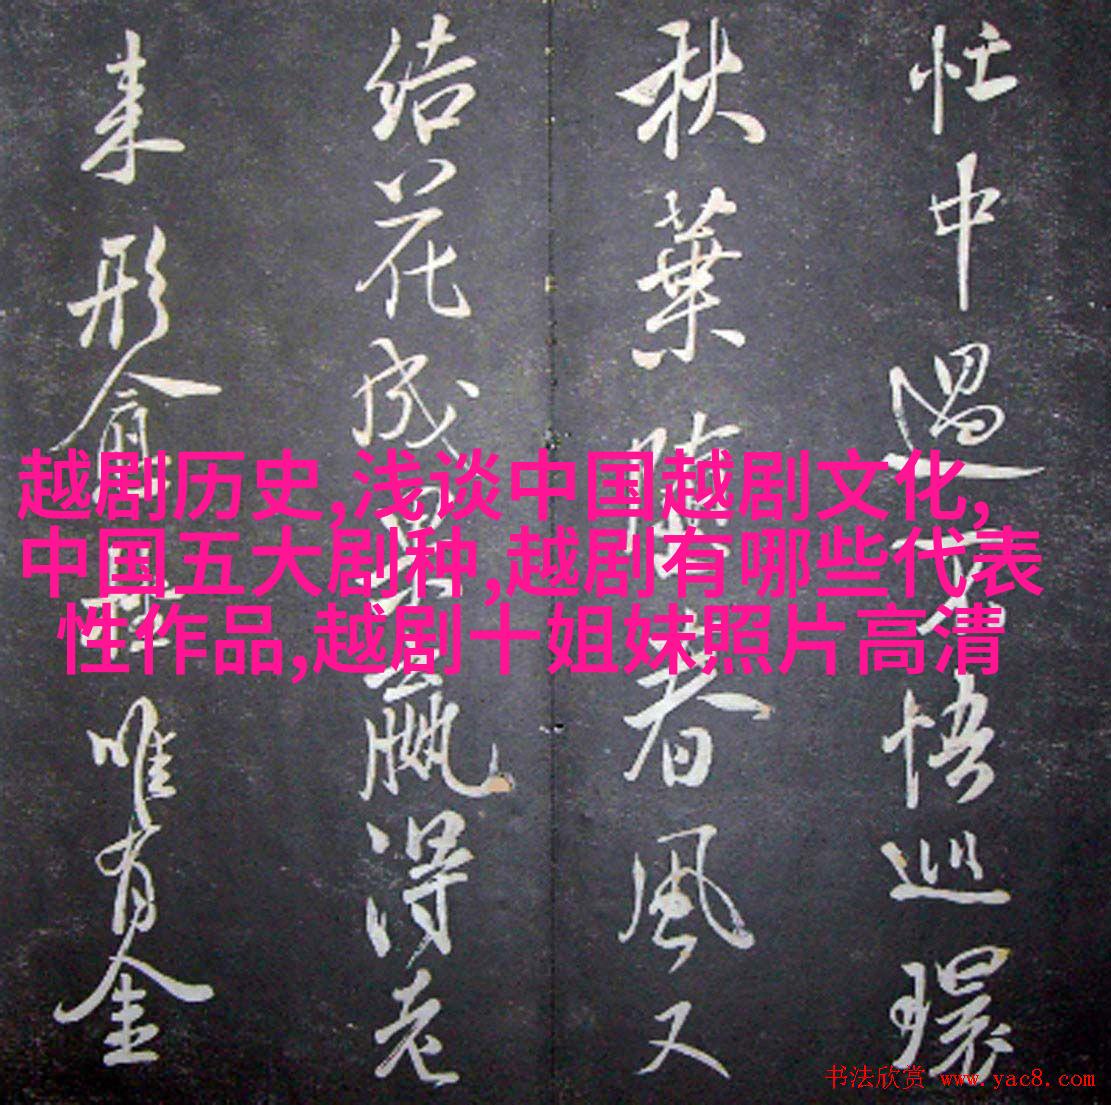 忙中過悟巡環
秋葉春風又
结花成贏得老
来形唯有金
越剧历史,浅谈中国越剧文化,
中国五大剧种,越剧有哪些代表
性作品,越剧十姐妹照片高清
书法欣赏 www.yac8.com